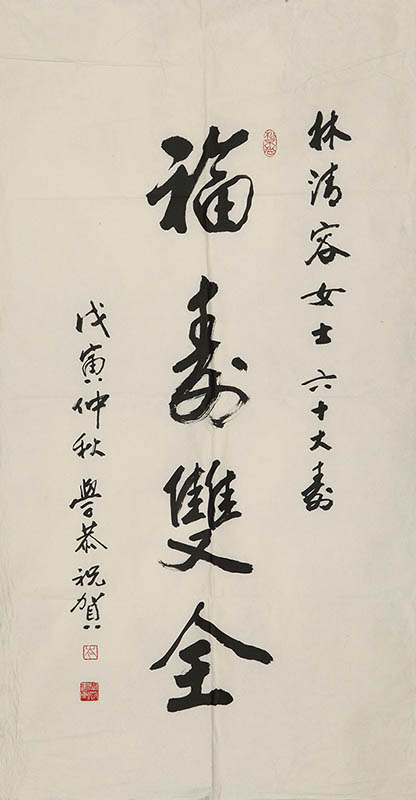 林清容女士六十大寿
福寿雙全
戊寅仲秋學恭祝賀